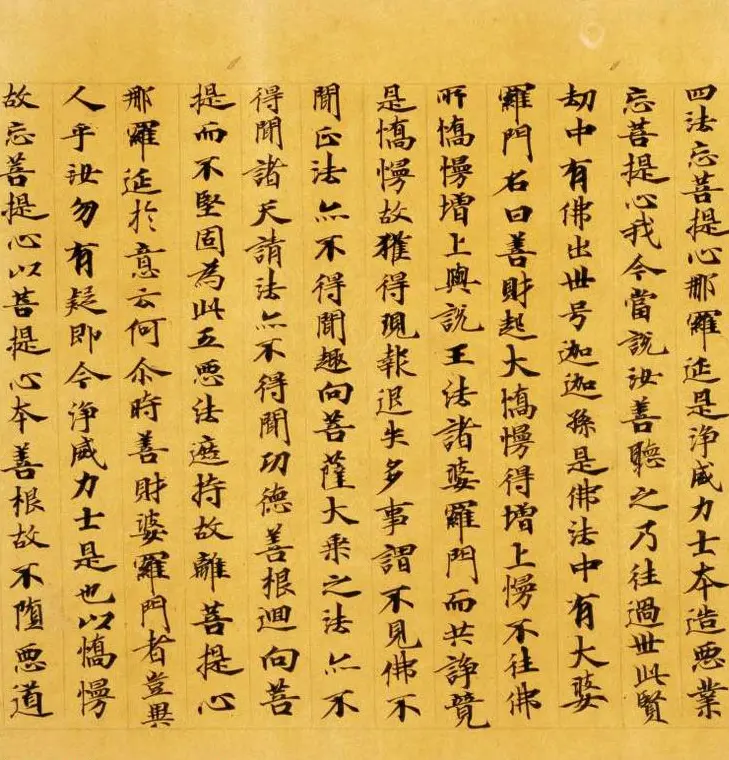 四法忘菩提心那羅延是淨威力士本造惡業
忘菩提心我今當說汝善聽之乃往過世此賢
劫中有佛出世号迦迦孫是佛法中有大婆
羅門名曰善財起大憍慢得增上慢不往佛
所憍慢增上與說王法諸婆羅門而共諍競
是憍慢故獲得現報退失多事謂不見佛不
聞正法亦不得聞趣向菩薩大乘之法亦不
得聞諸天請法亦不得聞功德善根迴向菩
提而不堅固為此五惡法遮持故離菩提心
那羅延於意云何尒時善財婆羅門者豈異
人乎汝勿有疑即今淨威力士是也以憍慢
故忘菩提心以菩提心本善根故不墮惡道